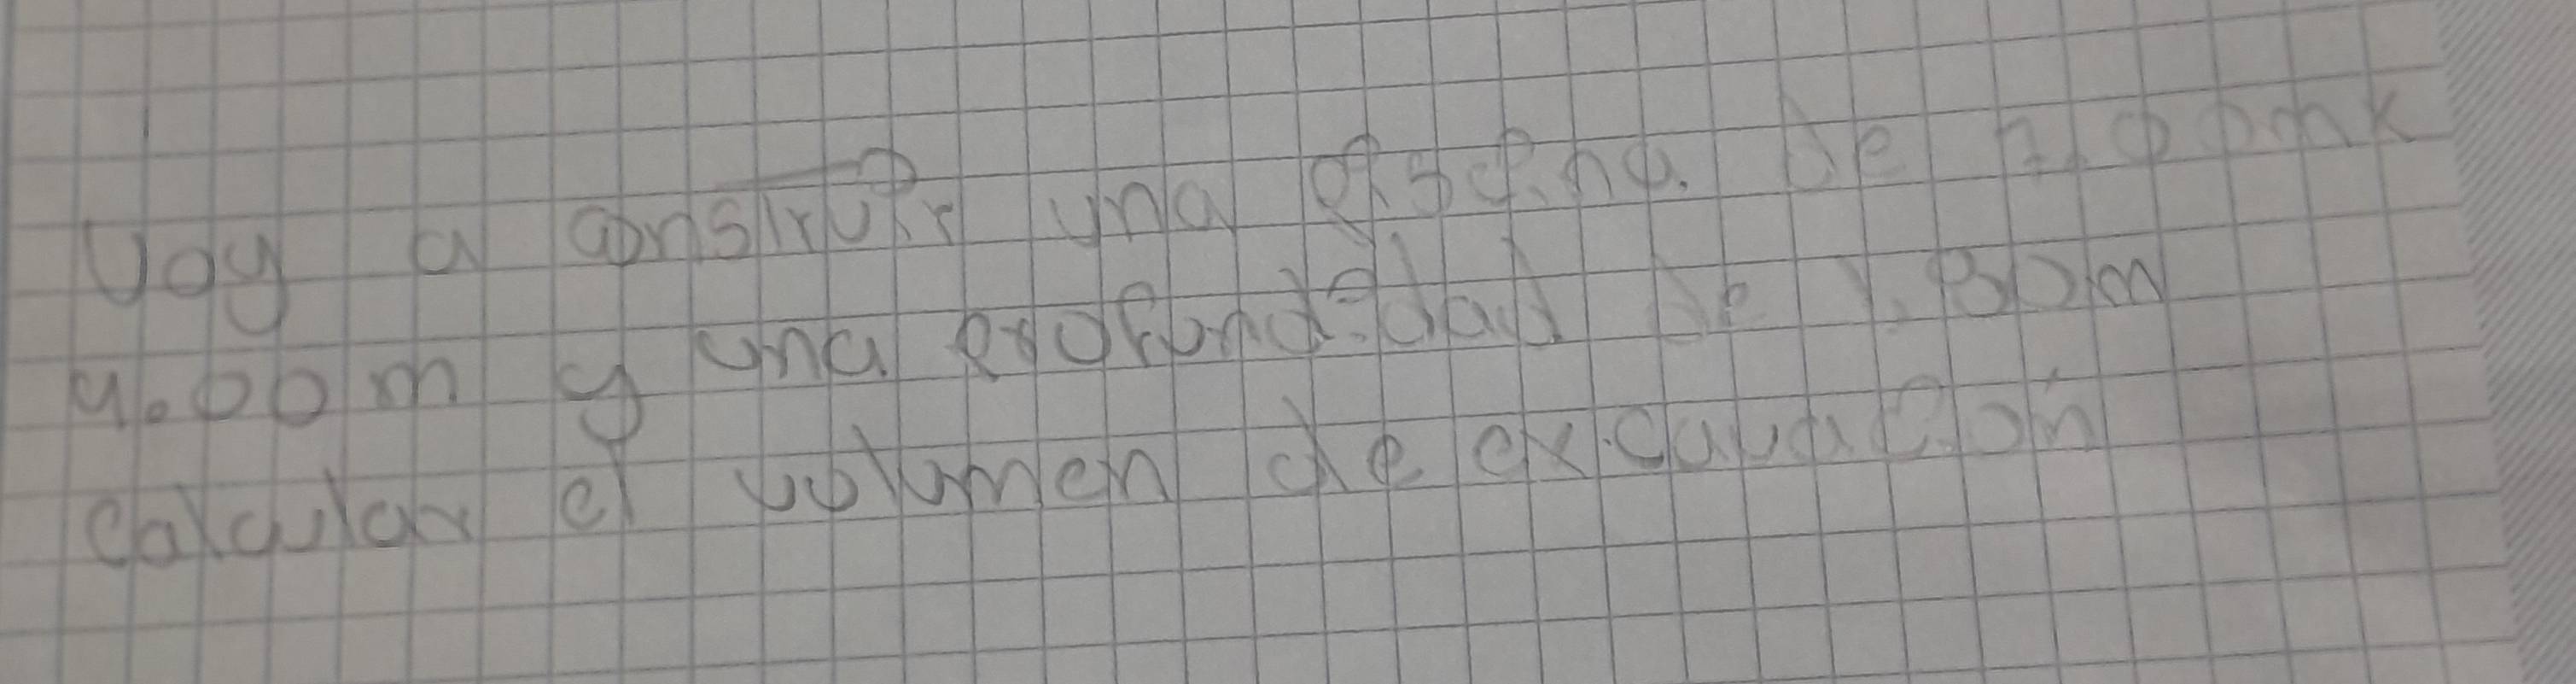 Voy a construir una piscina. de 7.00m x
4.00m y una profundidad de 1.80m
calcular el volumen de excavación